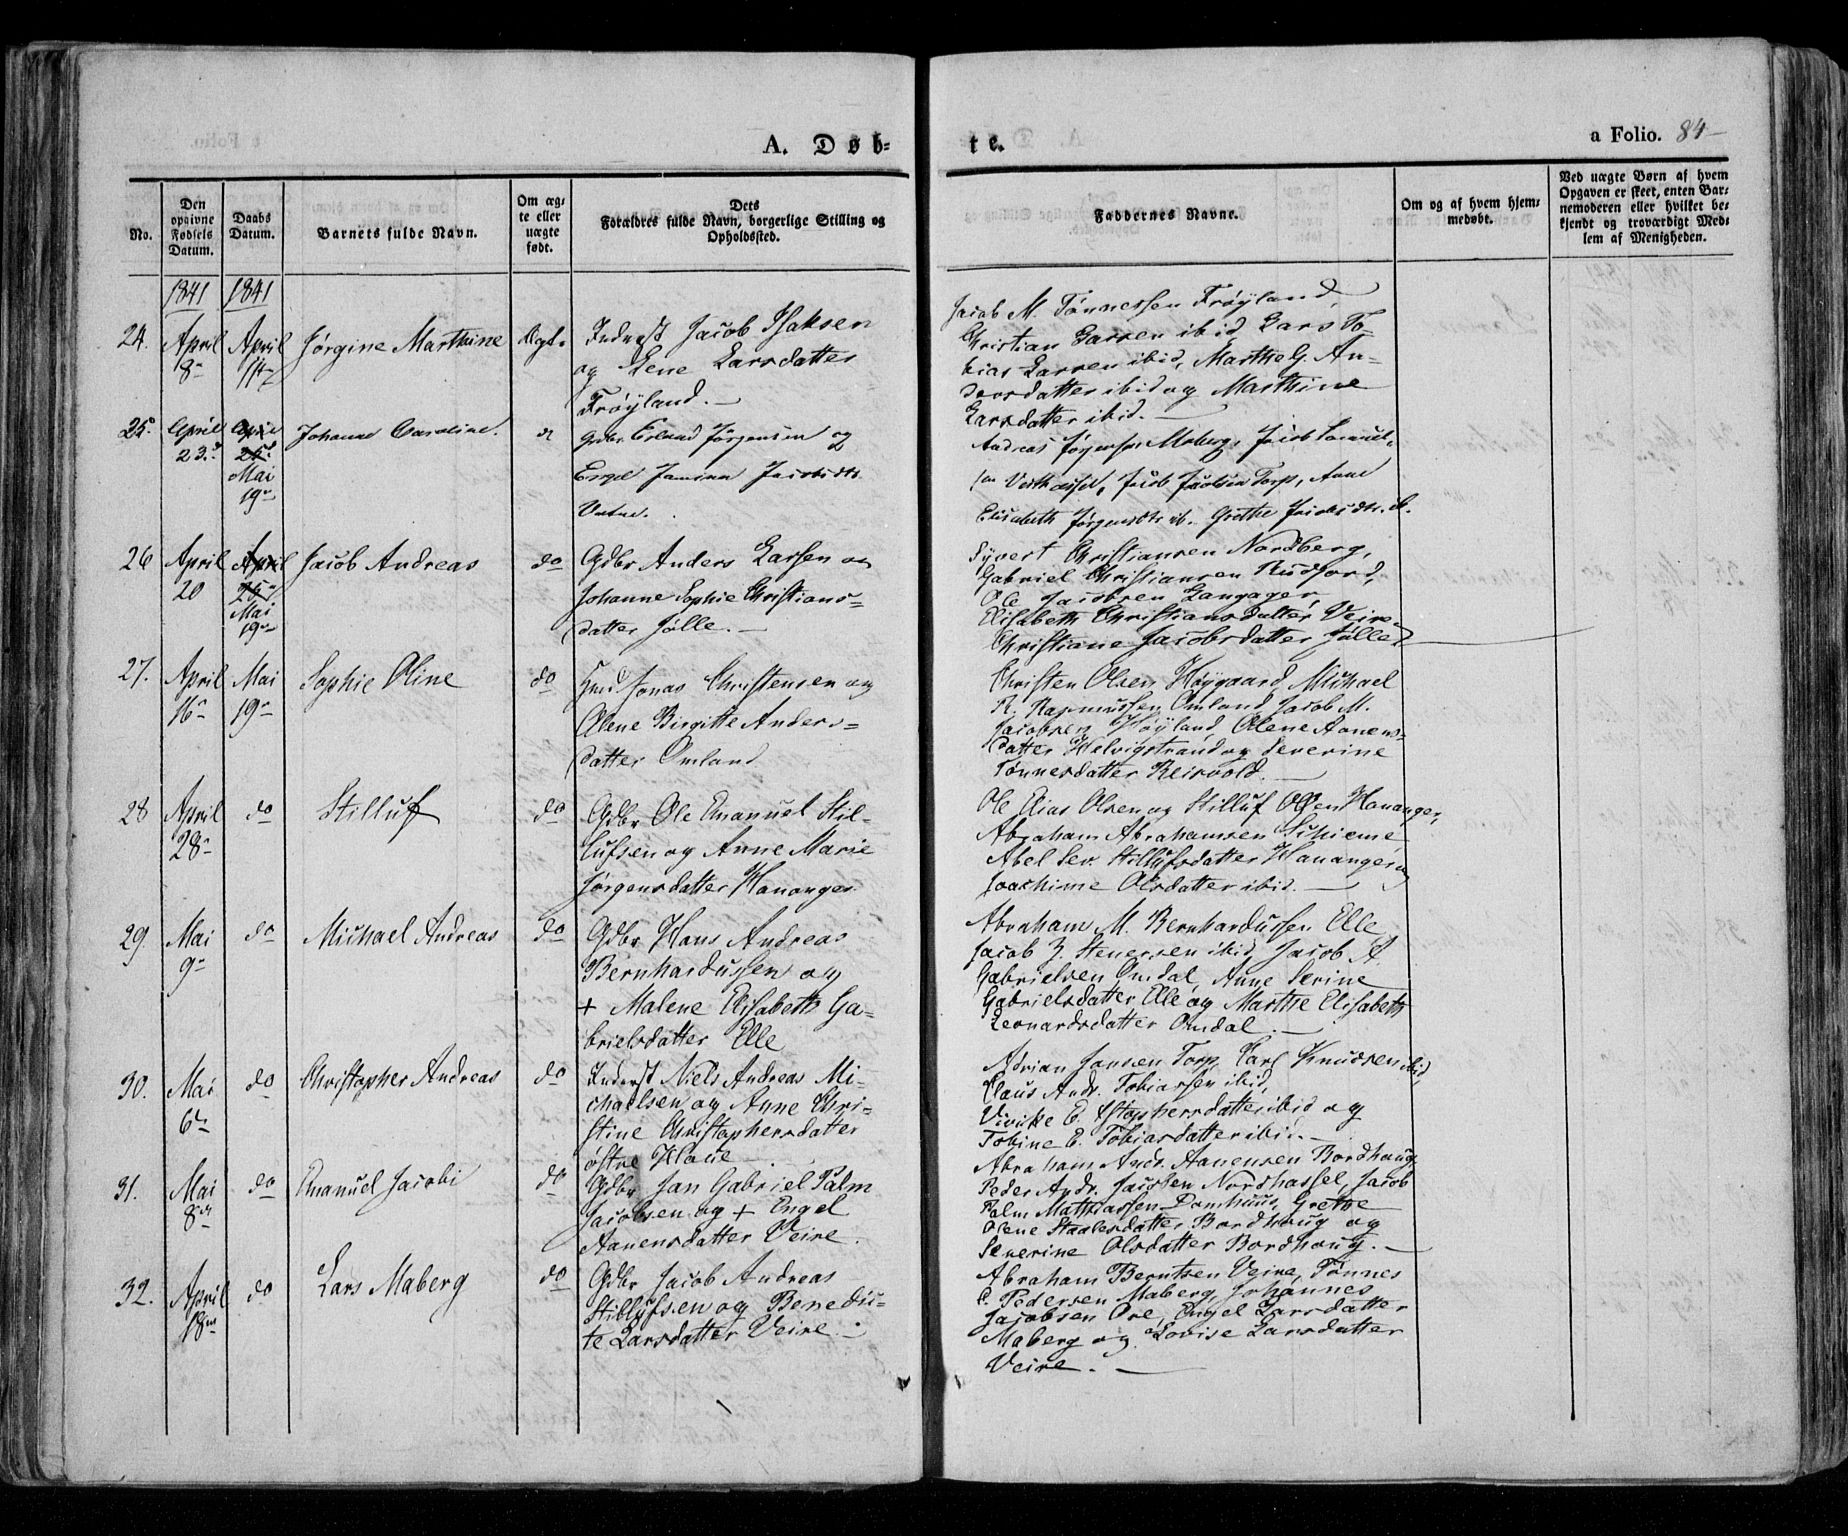 A. Døb-
te.
a Folio. 84
No.
Den
opgivne
Fødsels
Datum.
Daabs
Datum.
Barnets fulde Navn.
Om æg-
te eller
uægte
født.
Dets
Forældres fulde Navn, borgerlige Stilling og
Opholdssted.
Faddernes Navne.
Om og af hvem hjem-
medøbt.
Ved uægte Børn af hvem
Opgaven er skeet, enten Bar-
nemoderen eller hvilket be-
kjendt og troværdigt Med-
lem af Menigheden.
1841 1841
24. April 8 April 11 Jørgine Marthine Ægt.
Inderst Jacob Isaksen
og Lene Larsdatter
Frøyland.
Jacob M. Tønnessen Frøyland,
Christian Larsen ibid, Lars To-
bias Larsen ibid, Marthe G. An-
dersdatter ibid og Marthine
Larsdatter ibid.
25. April 23. April 25 Mai 19 Johanne Caroline.
Gdbr. Erland Jørgensen og
Engel Jacobsdtr.
Vatne.
Andreas Jørgens. Maberg, Jacob Samuel-
sen Vesthassel, Jacob Torp, Anne
Elisabeth Jørgensdtr ib. Grethe Jacobsdtr. ib.
26 April 20 April 25 Mai 19 Jacob Andreas do
Gdbr Anders Larsen og
Johanne Sophie Christians-
datter Jølle.
Syvert Christiansen Nordberg,
Gabriel Christiansen Rudjord,
Ole Jacobsen Langager,
Elisabeth Christiansdatter Veire
Christiane Jacobsdatter Jølle
27. April 16 Mai 19 Sophie Oline do
Jonas Christensen og
Olene Birgitte Anders-
datter Omland
Christen Olsen Høygaard, Michael
R. Rasmussen Omland Jacob M.
Jacobsen Høyland, Olene Aanens-
datter Helvigstrand og Severine
Tønnesdatter Reisvold.
28 April 28 do Stilluf do
Gdbr Ole Emanuel Stil-
lufsen og Anne Marie
Jørgensdatter Hananger
Ole Elias Olsen og Stilluf Olsen Hananger,
Abraham Abrahamsen
Abel Sev. Stillufsdatter Hananger og
Joachime Olsdatter ibid.
29. Mai 9 do Michael Andreas do
Gdbr Hans Andreas
Bernhardussen og
+ Malene Elisabeth Ga-
brielsdatter Elle
Abraham M. Bernhardussen Elle
Jacob Z. Stenersen ibid, Jacob A
Gabrielsen Omdal, Anne Serine
Gabrielsdatter Elle og Marthe Elisabeth
Leonardsdatter Omdal.
30. Mai 6 do Christopher Andreas do
Inderst Niels Andreas Mi-
chaelsen og Anne Chri-
stine Christophersdatter
østre Haue
Adrian Jansen Torp, Carl Knudsen ibid,
Claus Andr. Tobiassen ibid,
Vivike E. Christophersdatter ibid og
Tobine E. Tobiasdatter ibid.
31. Mai 8 do Emanuel Jacobi do
Gdbr Jan Gabriel Palm
Jacobsen og + Engel
Aanensdatter Veire.
Abraham Andr. Aanensen Bordhoug
Peder Andr. Jacobsen Nordhassel, Jacob
Palm Mathiassen Domhuus, Grethe
Olene Staalesdatter Bordhoug og
Severine Olsdatter Bordhoug.
32. April 18 do Lars Maberg do
Gdbr Jacob Andreas
Stillufsen og Benedic-
te Larsdatter Veire.
Abraham Berntsen Veire, Tønnes
E. Pedersen Maberg, Johannes
Jacobsen Ore, Engel Larsdatter
Maberg og Lovise Larsdatter
Veire.